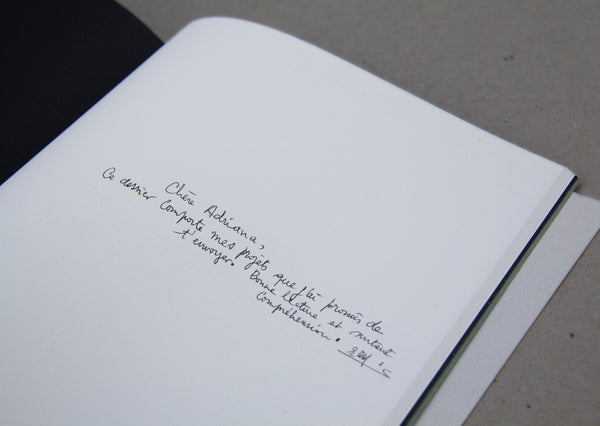 Chère Adriana,
Ce dossier comporte mes projets que j'ai promis de
t'envoyer. Bonne lecture et surtout
Compréhension.